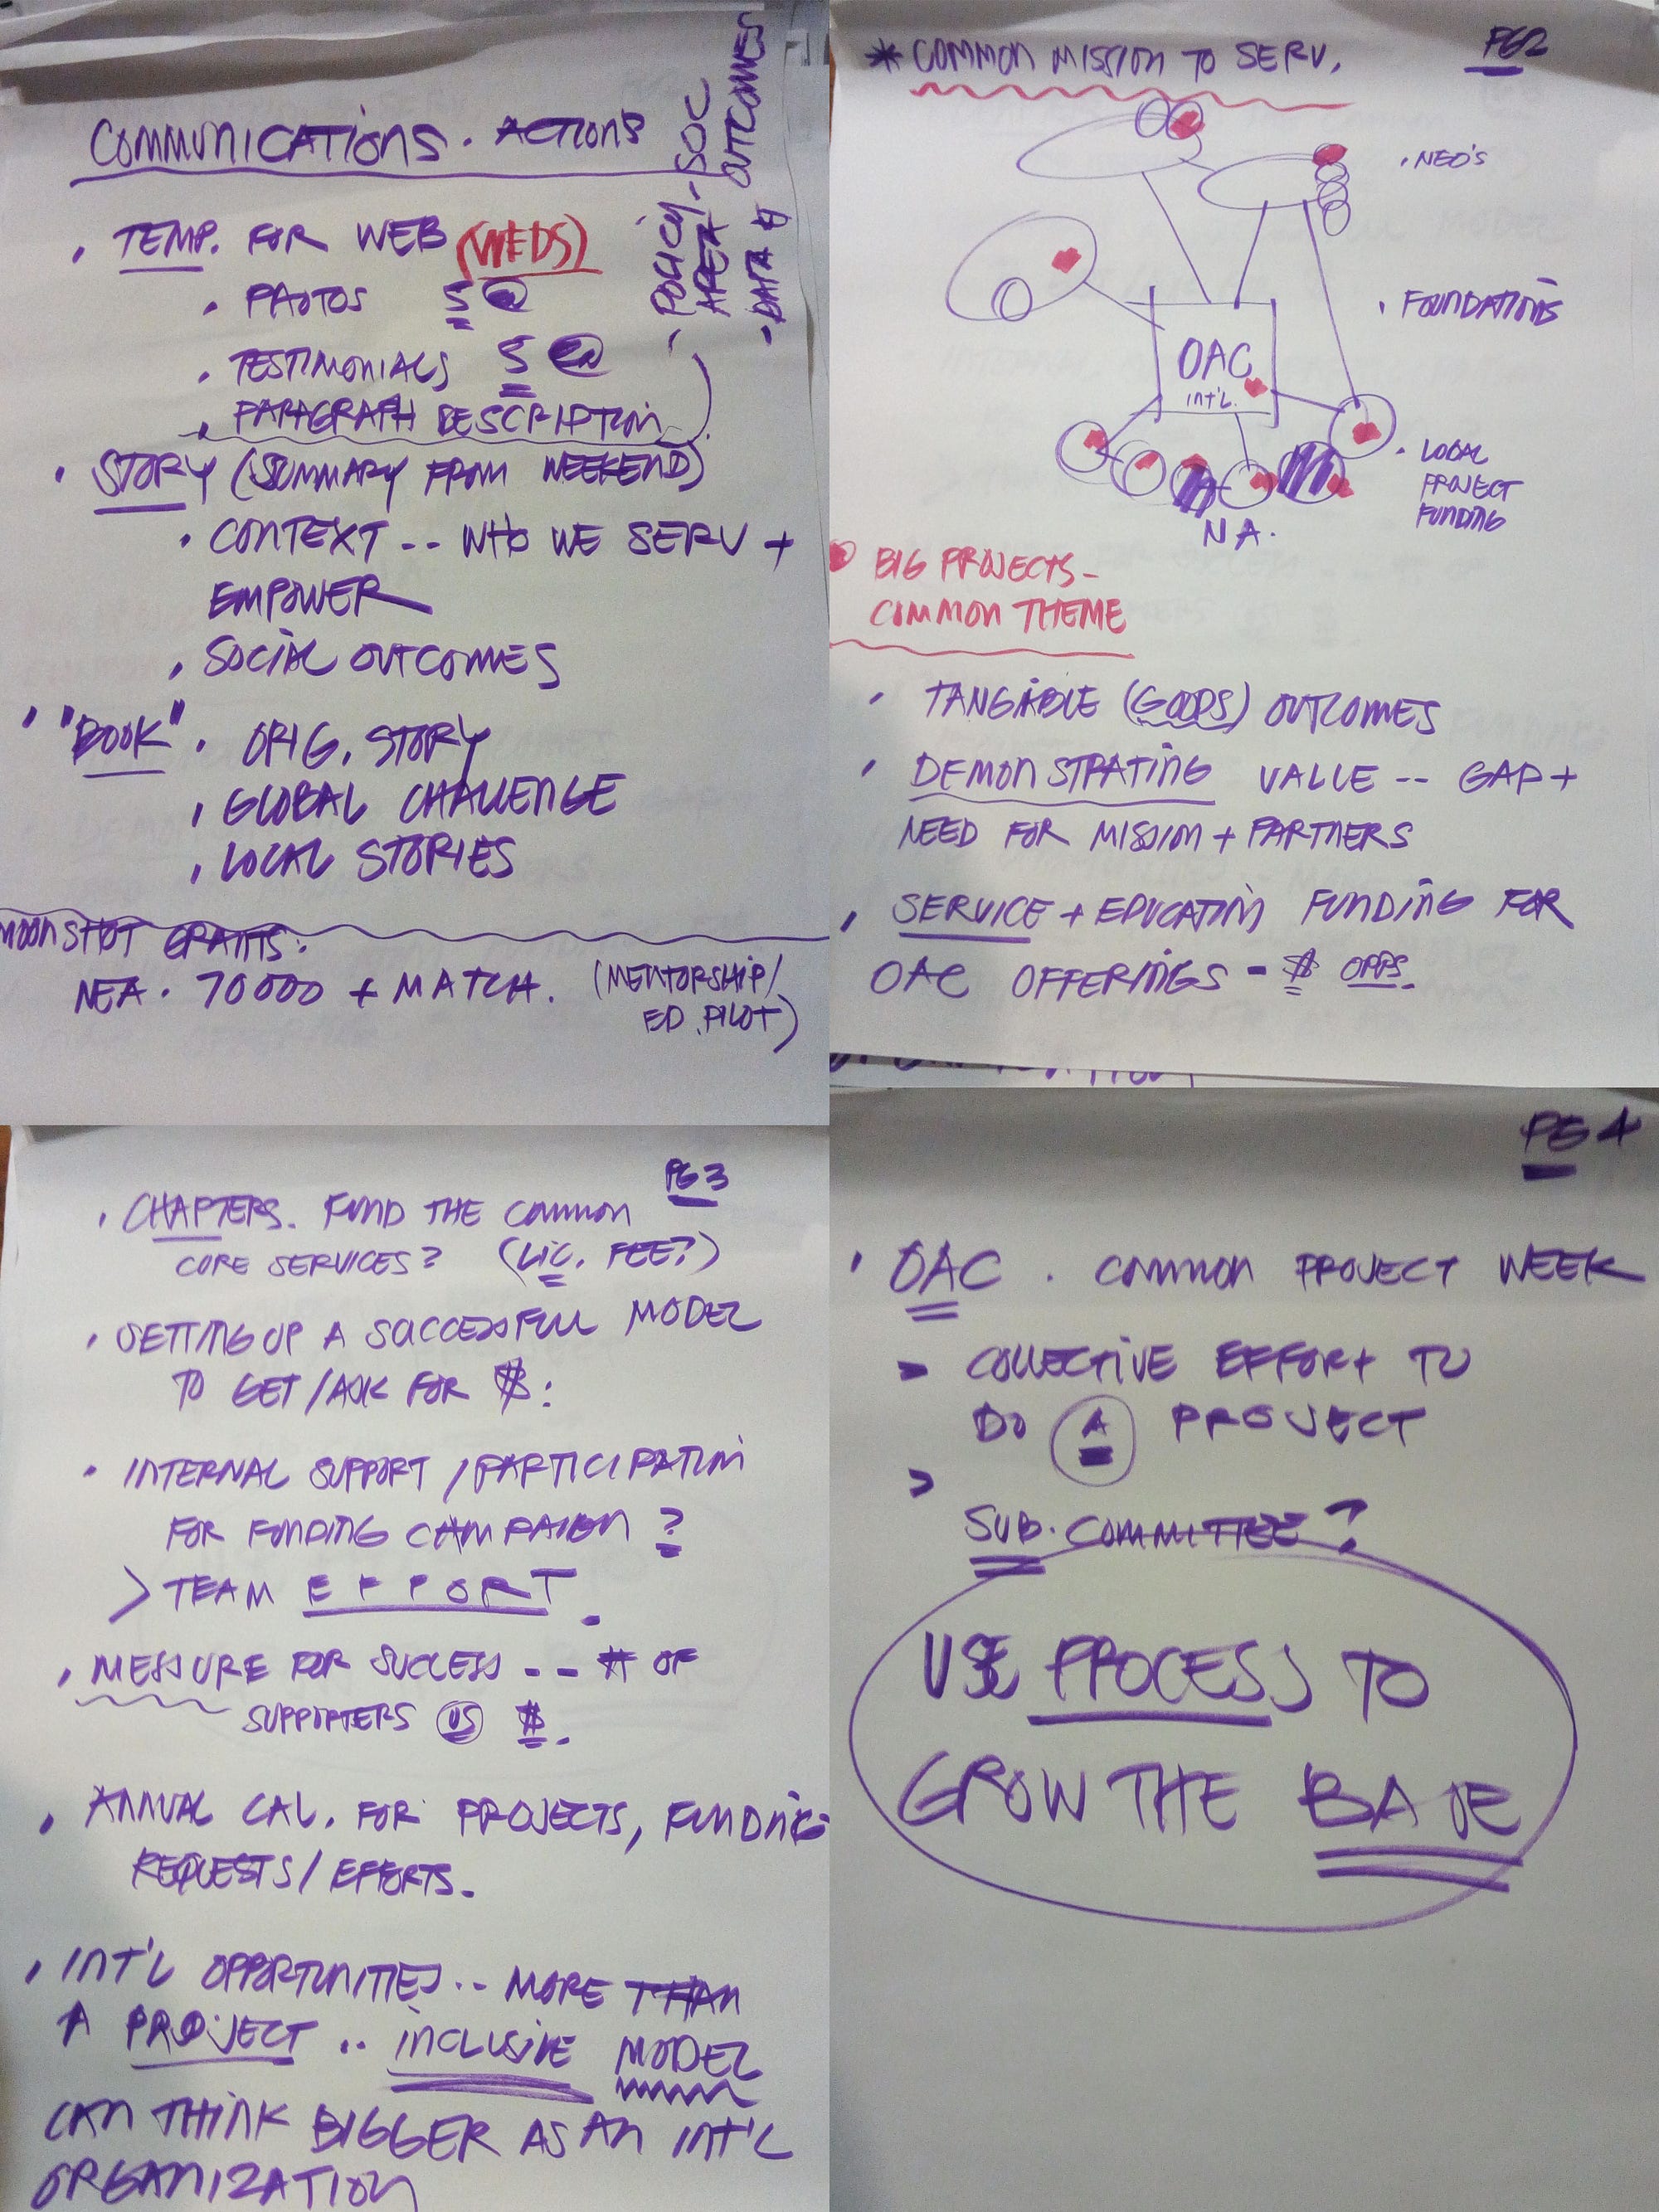 COMMUNICATIONS. ACTIONS
. TEMP. FOR WEB (WEDS)
. PHOTOS 5
. TESTIMONIALS 5
. PARAGRAPH DESCRIPTION
. POLICY - SOC
AREA OUTCOMES
- DATA #
. STORY (SUMMARY FROM WEEKEND)
. CONTEXT -- WHO WE SERV +
EMPOWER
. SOCIAL OUTCOMES
. "BOOK" . ORIG. STORY
. GLOBAL CHALLENGE
. LOCAL STORIES
MOONSHOT GRANTS:
NEA. 70000 + MATCH. (MENTORSHIP/
ED. PILOT)
* COMMON MISSION TO SERV. PG2
. NEO'S
. FOUNDATIONS
OAC
INT'L.
. LOCAL
PROJECT
FUNDING
N A.
BIG PROJECTS -
COMMON THEME
. TANGIBLE (GOODS) OUTCOMES
. DEMONSTRATING VALUE -- GAP +
NEED FOR MISSION + PARTNERS
. SERVICE + EDUCATION FUNDING FOR
OAC OFFERINGS - $ OPPS.
PG 3
. CHAPTERS. FUND THE COMMON
CORE SERVICES? (LIC. FEE?)
. SETTING UP A SUCCESSFUL MODEL
TO GET/ASK FOR $:
. INTERNAL SUPPORT/PARTICIPATION
FOR FUNDING CAMPAIGN ?
> TEAM EFFORT.
. MEASURE FOR SUCCESS -- # OF
SUPPORTERS VS $.
. ANNUAL CAL. FOR PROJECTS, FUNDING
REQUESTS/EFFORTS.
. INT'L OPPORTUNITIES.. MORE THAN
A PROJECT .. INCLUSIVE MODEL
CAN THINK BIGGER AS AN INT'L
ORGANIZATION
PG 4
. OAC . COMMON PROJECT WEEK
- COLLECTIVE EFFORT TO
DO A PROJECT
>
SUB. COMMITTEE?
USE PROCESS TO
GROW THE BASE